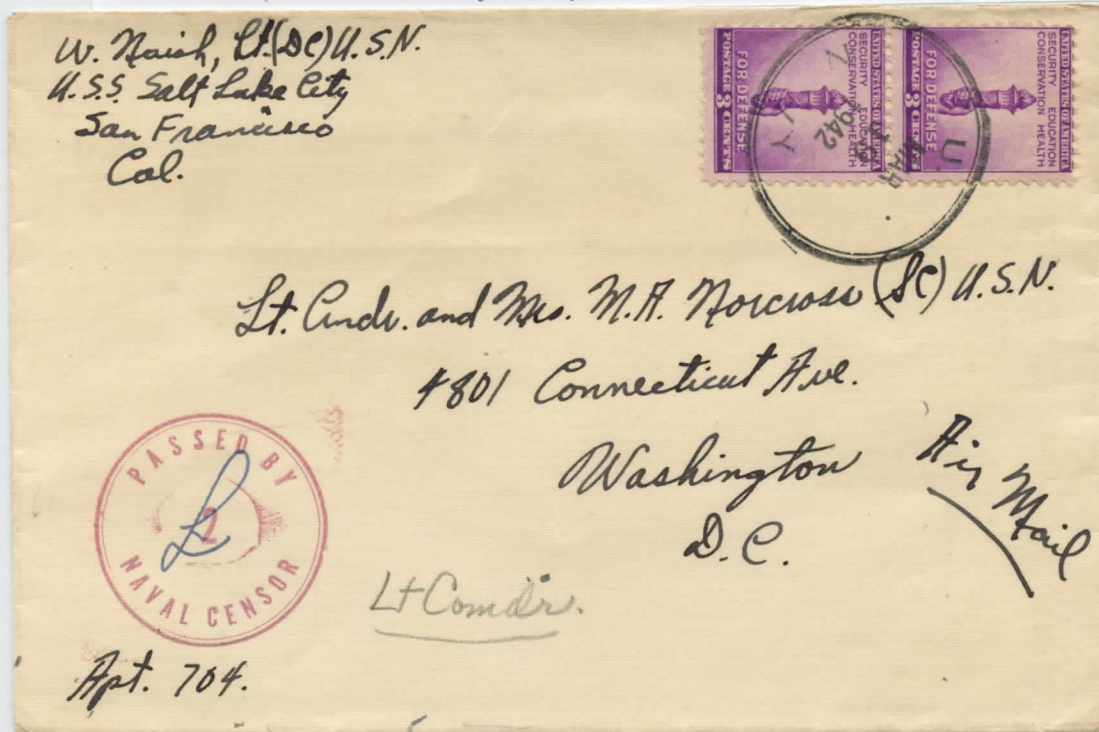 W. Naish, Lt. (DC) U.S.N.
U.S.S. Salt Lake City
San Francisco
Cal.
UNITED STATES OF AMERICA
SECURITY EDUCATION
CONSERVATION HEALTH
FOR DEFENSE
POSTAGE 3 CENTS
UNITED STATES OF AMERICA
SECURITY EDUCATION
CONSERVATION HEALTH
FOR DEFENSE
POSTAGE 3 CENTS
U.
MAR
1942
Lt. Cmdr. and Mrs. M.A. Norcross (SC) U.S.N.
4801 Connecticut Ave.
Washington
D.C.
Air Mail
PASSED BY
NAVAL CENSOR
Lt Comdr.
Apt. 704.